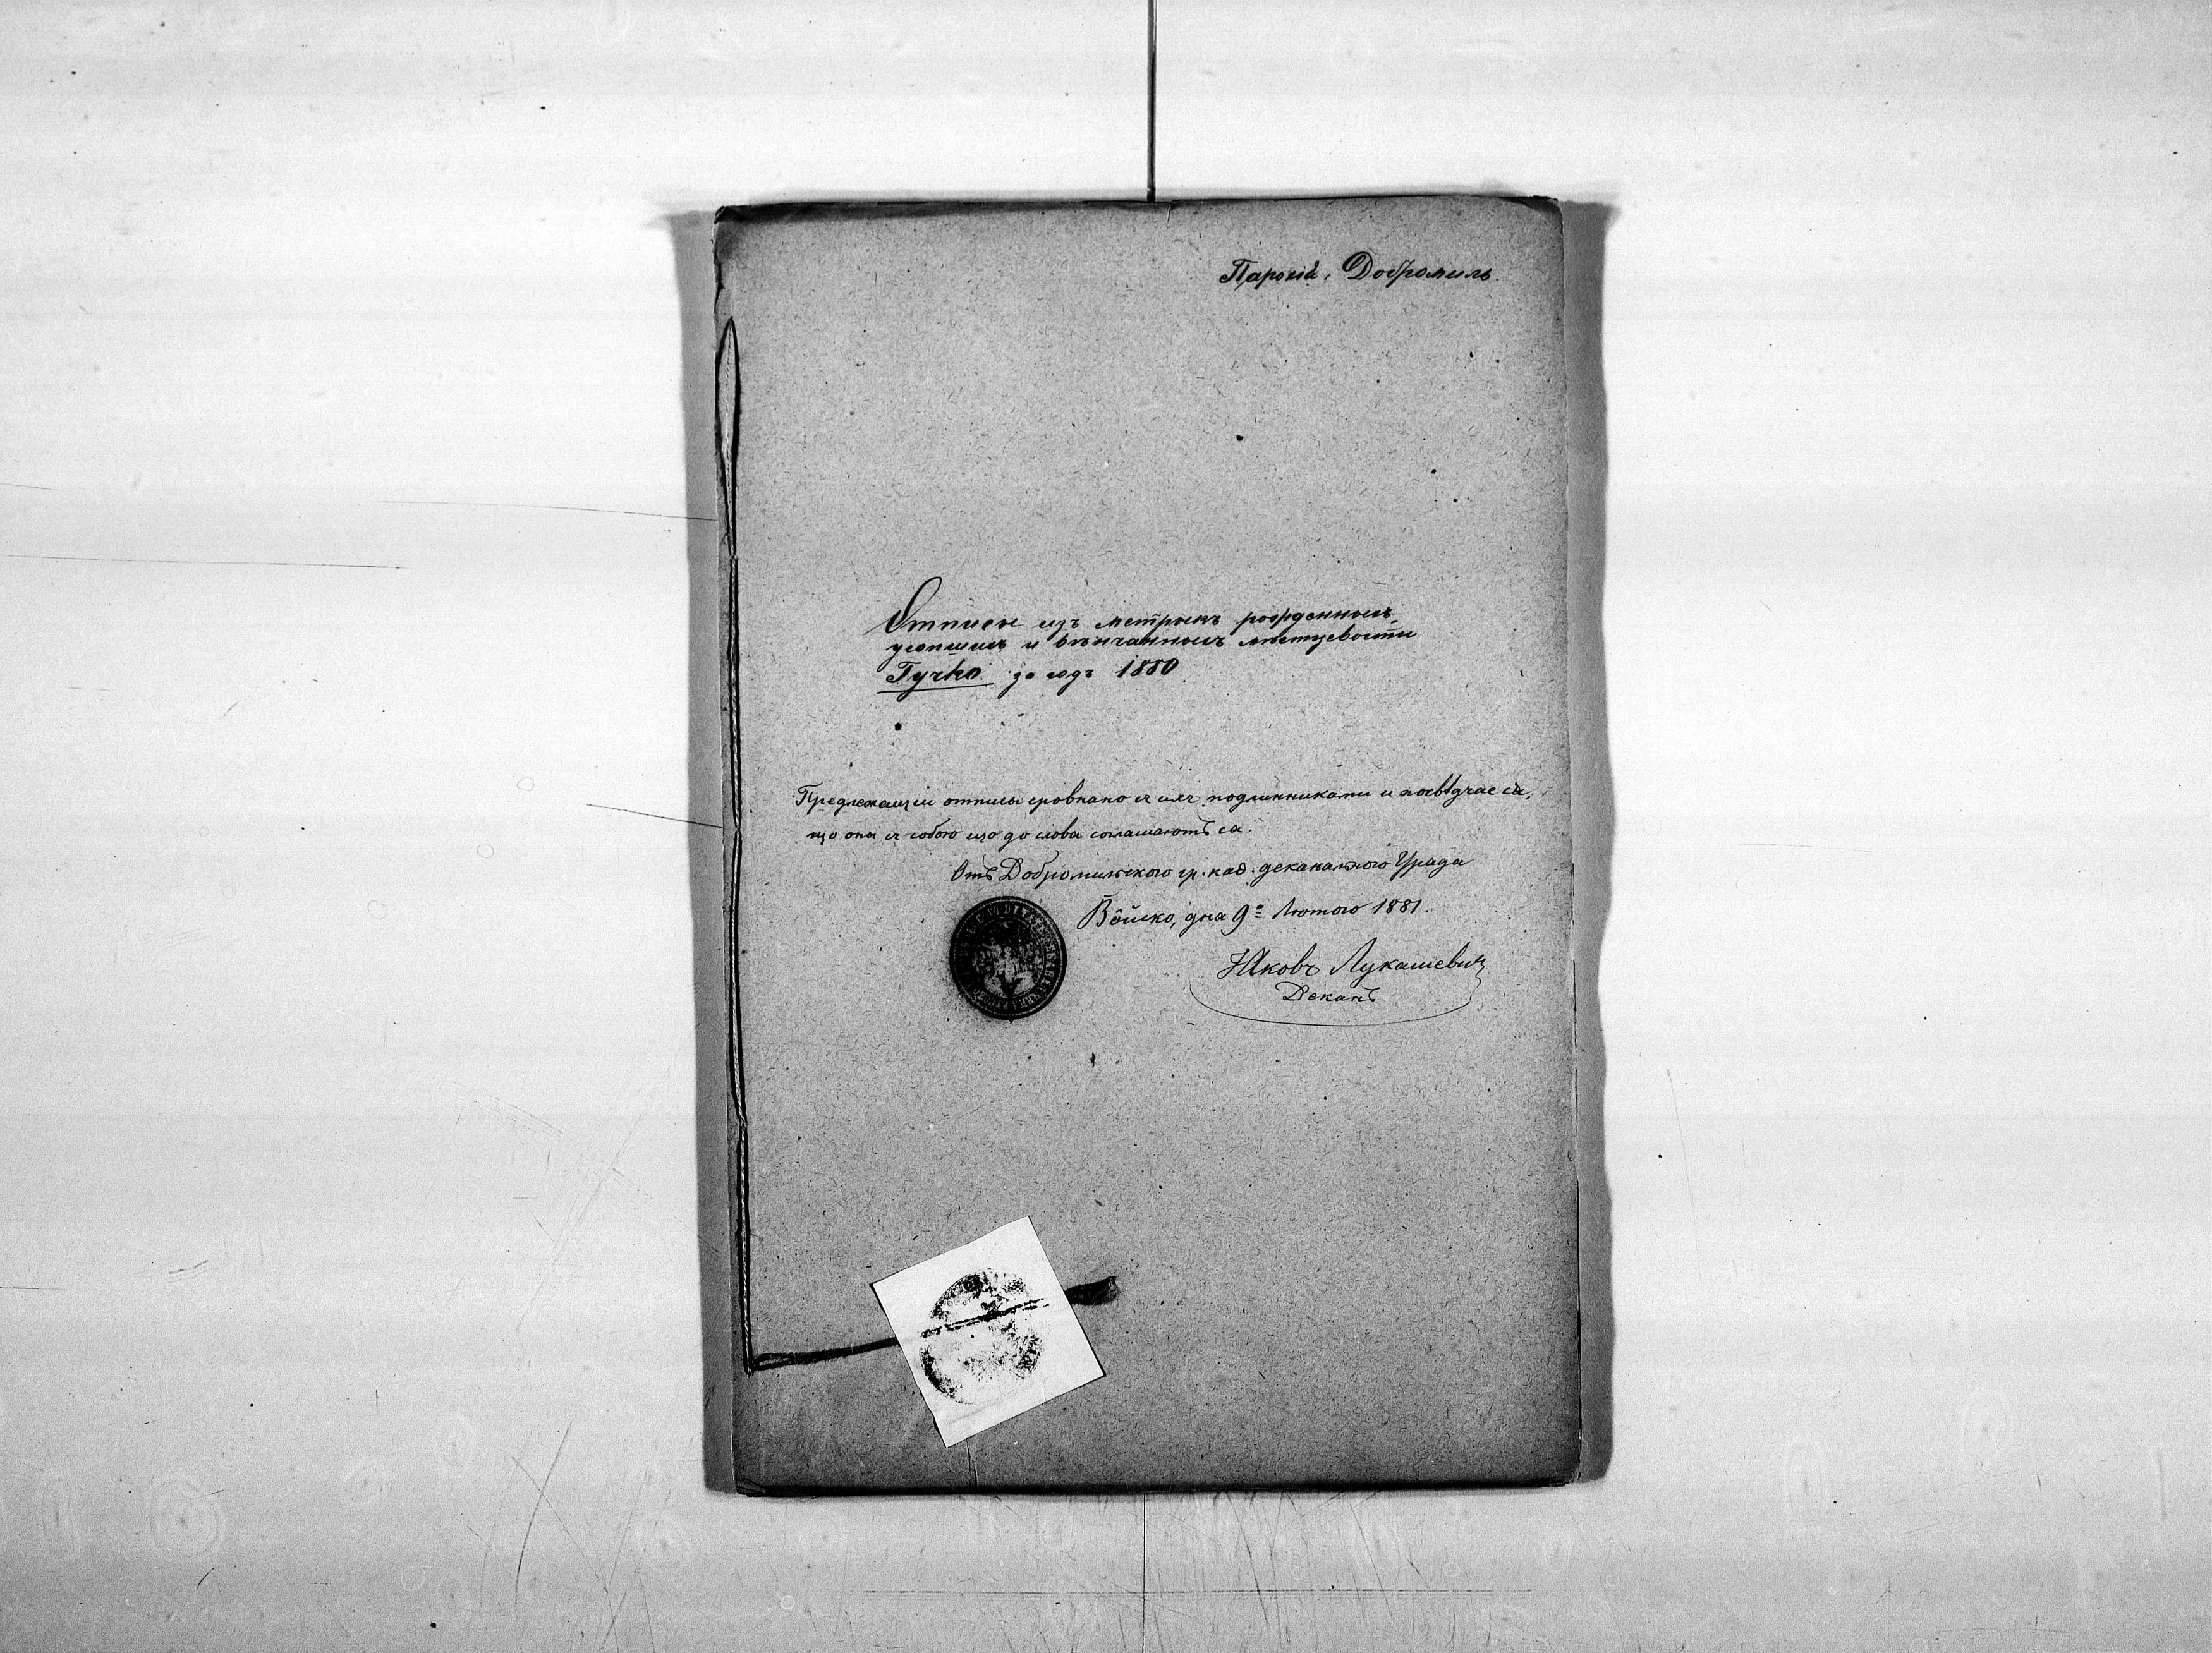 Парохія. Добромиль.
Отписы изъ метрыкъ рожденныхъ,
усопшихъ и вѣнчанныхъ мѣстцевости
Гучко за годъ 1880
Предлежащіи отписы зровнано съ ихъ подлинниками и посвѣдчае ся,
що они съ собою що до слова соглашаютъ ся.
Отъ Добромильского гр. каѳ. деканального Уряда
Войско, дня 9го Лютого 1881.
Іяковъ Лукашевич
Деканъ